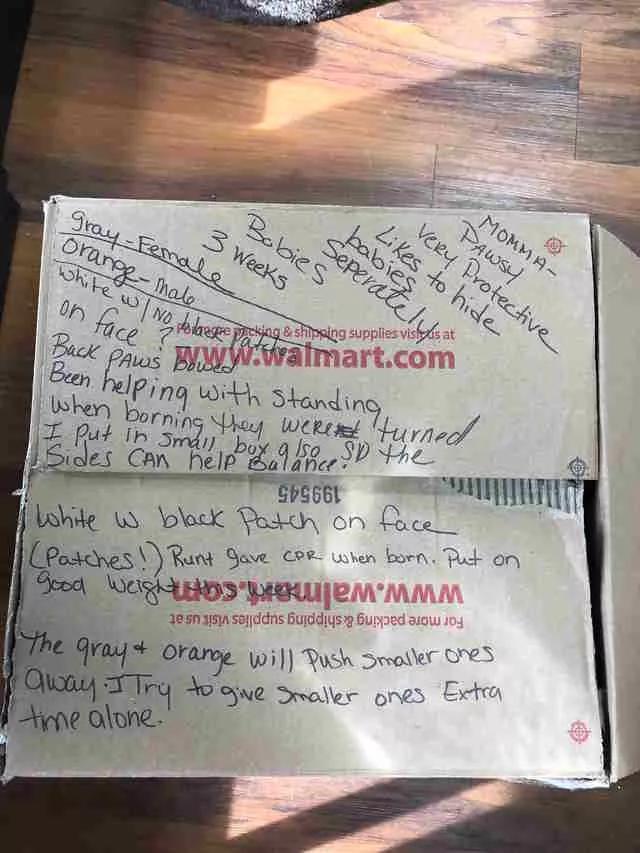 MOMMA-
PAWSY
Very Protective
Likes to hide
babies
Seperately
Babies
3 weeks
gray-Female
Orange-male
White w/ NO black Patches
on face ?
Back PAWS bowed
Been helping with Standing
when borning they were turned
I Put in Small box also SD the
Sides CAN help Balance.
For more packing & shipping supplies visit us at
www.walmart.com
199545
White w black Patch on face
(Patches!) Runt gave CPR when born. Put on
good weight this week
www.walmart.com
For more packing & shipping supplies visit us at
The gray & orange will Push smaller ones
away. I Try to give smaller ones Extra
time alone.